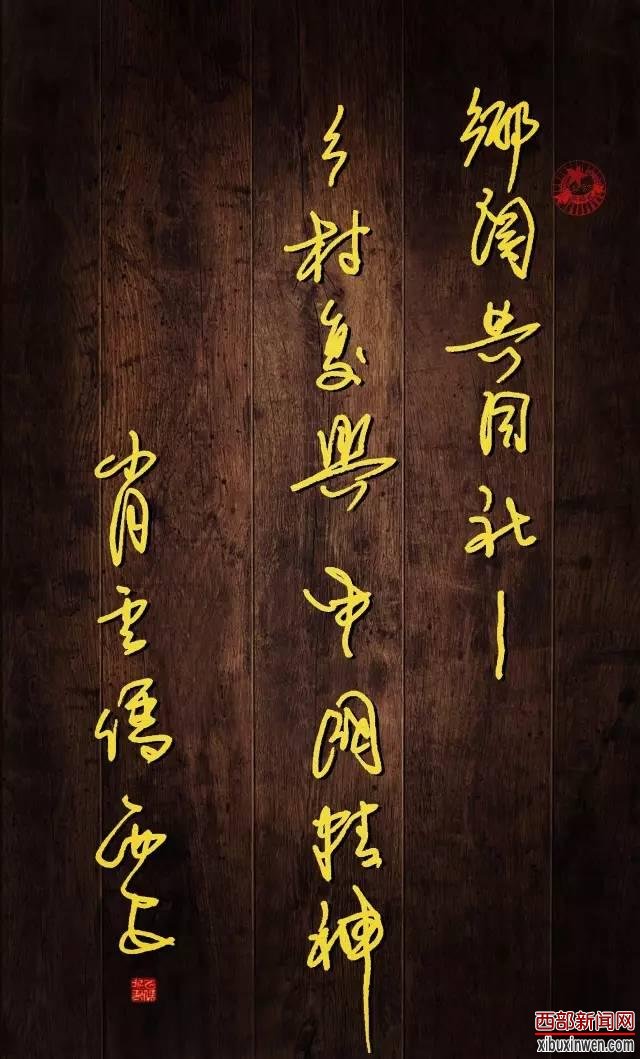 鄉共同社—
乡村复興中国精神
肖云儒西安
西部新闻网
xibuxinwen.com